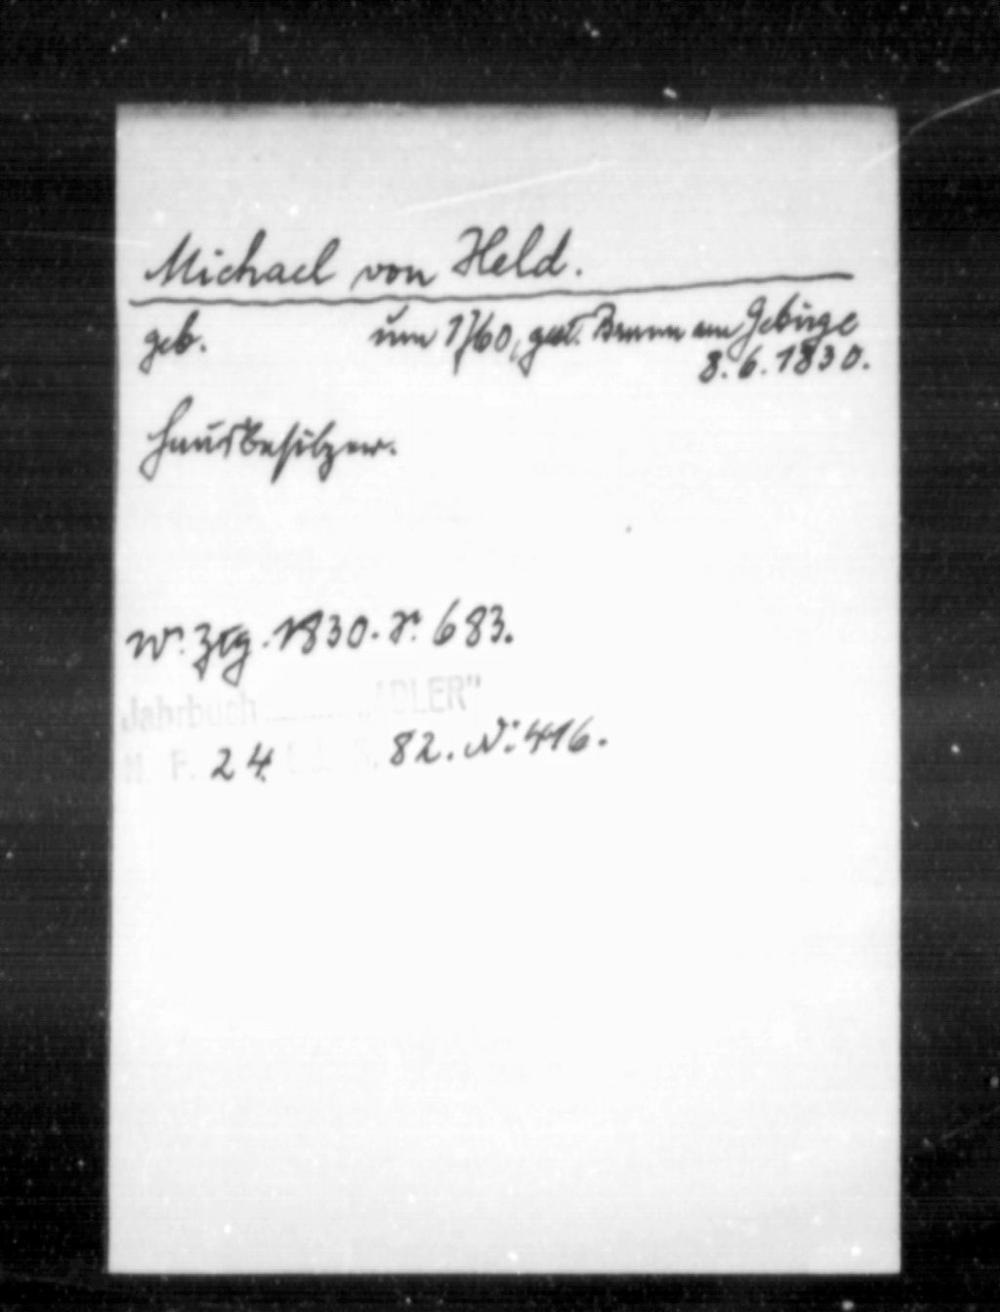 Michael von Held.
geb. um 1760, gest. Brunn am Gebirge
8.6.1830.
Hausbesitzer.
W. Ztg. 1830. S. 683.
Jahrbuch "ADLER"
N. F. 24 S. 82. N: 416.